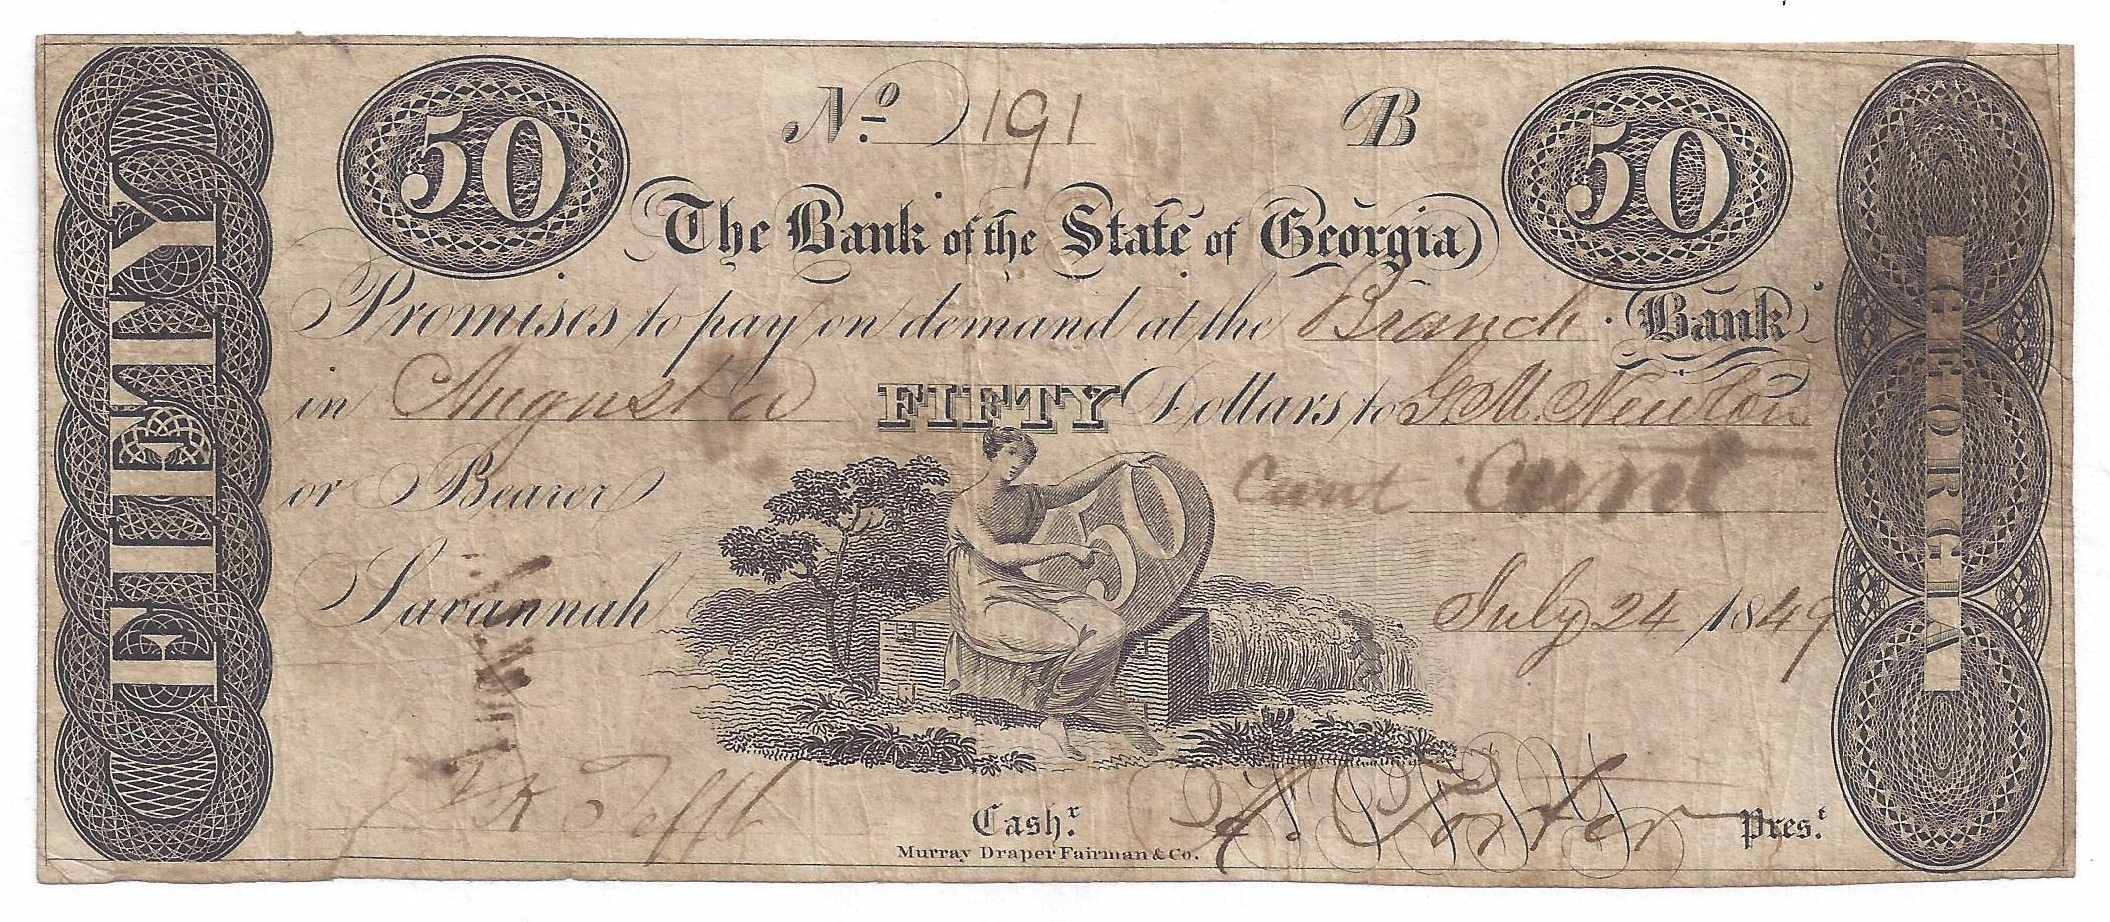 FIFTY
50
No. 191
B
50
The Bank of the State of Georgia
Promises to pay on demand at the Branch Bank
in Augusta FIFTY Dollars to G. M. Newton
or Bearer
50
Savannah July 24 1849
I K Tefft Cashr. A. Porter Prest.
Murray Draper Fairman & Co.
GEORGIA